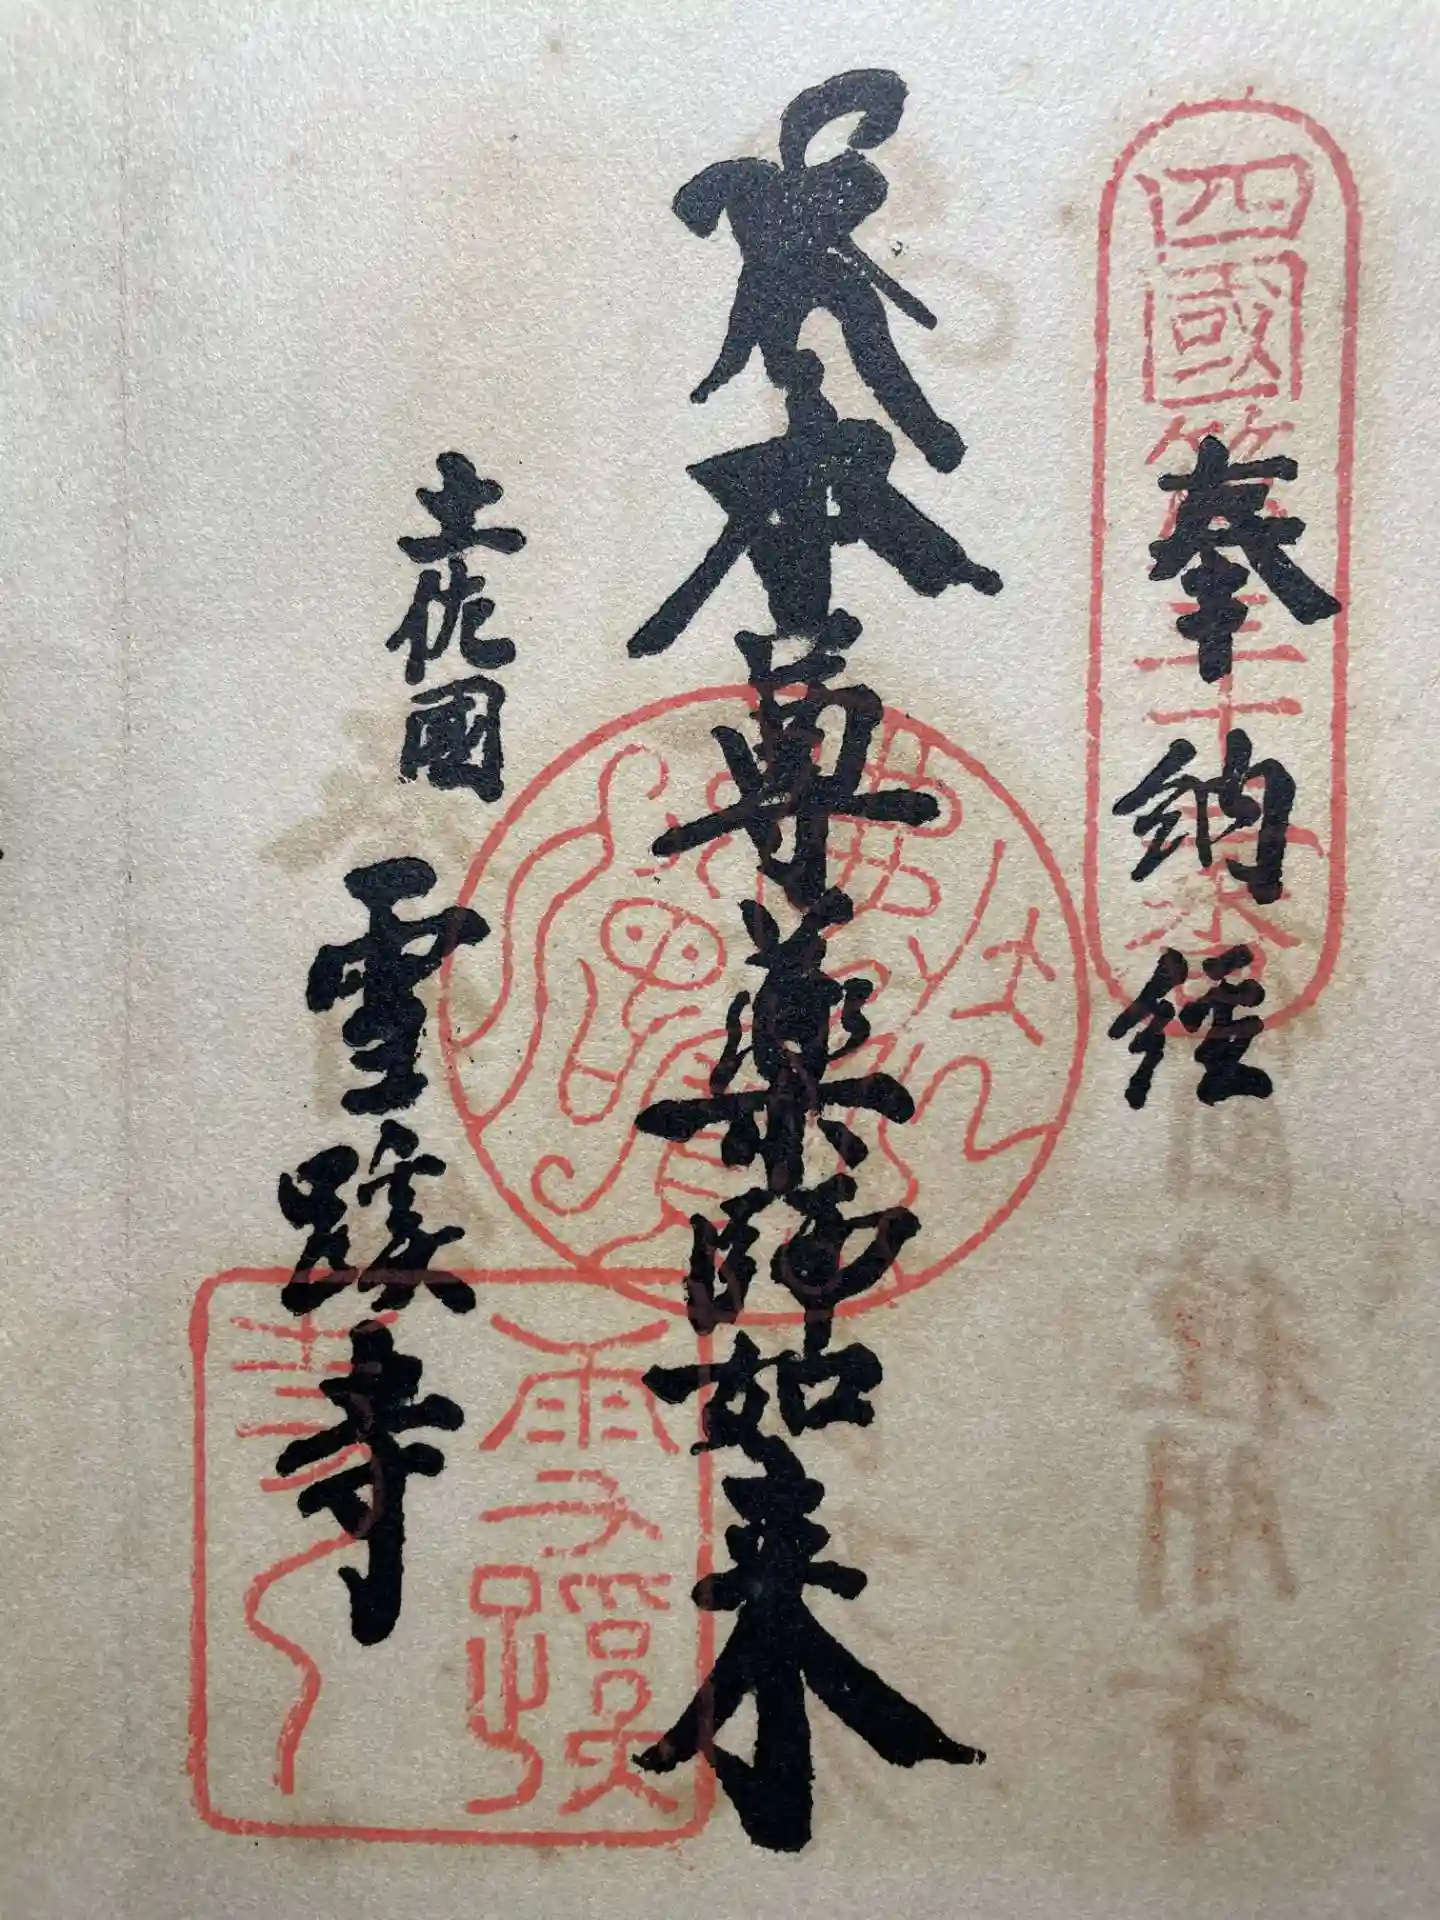 四國第三十三番
奉納経
本尊薬師如来
土佐國
雪蹊寺
雪蹊